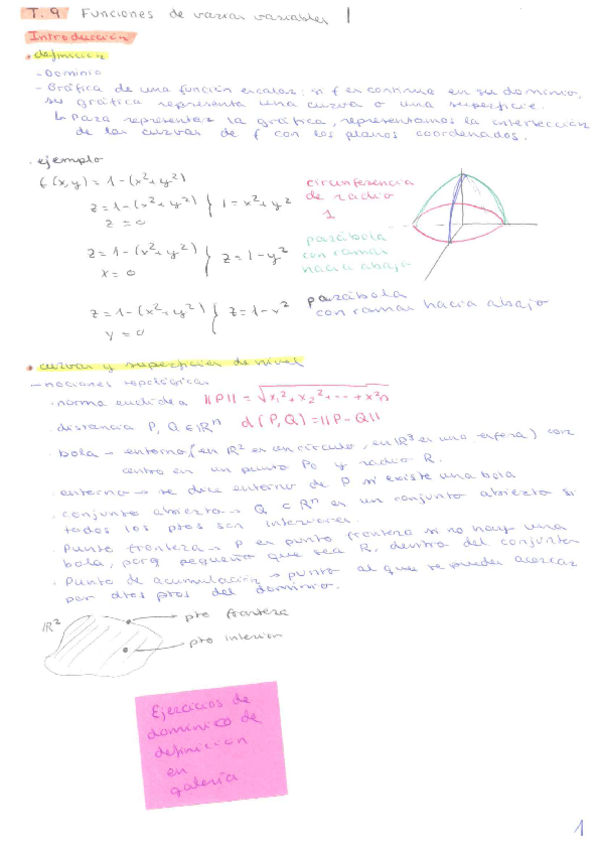 T.9 Funciones de varias variables
Introducción
• definición
- Dominio
- Gráfica de una función escalar: si f es continua en su dominio,
su gráfica representa una curva o una superficie.
↳ Para representar la gráfica, representamos la intersección
de las curvas de f con los planos coordenados.
· ejemplo
f(x,y) = 1-(x²+y²)
z=1-(x²+y²) } 1=x²+y²
z=0
circunferencia
de radio
1
z=1-(x²+y²) } z=1-y²
x=0
parábola
con ramas
hacia abajo
z=1-(x²+y²) } z=1-x²
y=0
parábola
con ramas hacia abajo
• curvas y superficies de nivel
- nociones topológicas
· norma euclídea ||P|| = √x₁²+x₂²+...+x²n
· distancia P, Q ∈ ℝⁿ d(P,Q)=||P-Q||
· bola - entorno (en ℝ² es un círculo, en ℝ³ es una esfera) con
centro en un punto P₀ y radio R.
· entorno → se dice entorno de P si existe una bola
· conjunto abierto → Q ⊂ ℝⁿ es un conjunto abierto si
todos los ptos son interiores.
· Punto frontera → P es punto frontera si no hay una
bola, porq pequeña que sea R, dentro del conjunto
· Punto de acumulación → punto al que te puedes acercar
por otros ptos del dominio.
ℝ²
pto frontera
pto interior
Ejercicios de
dominio de
definición
en
galería
1